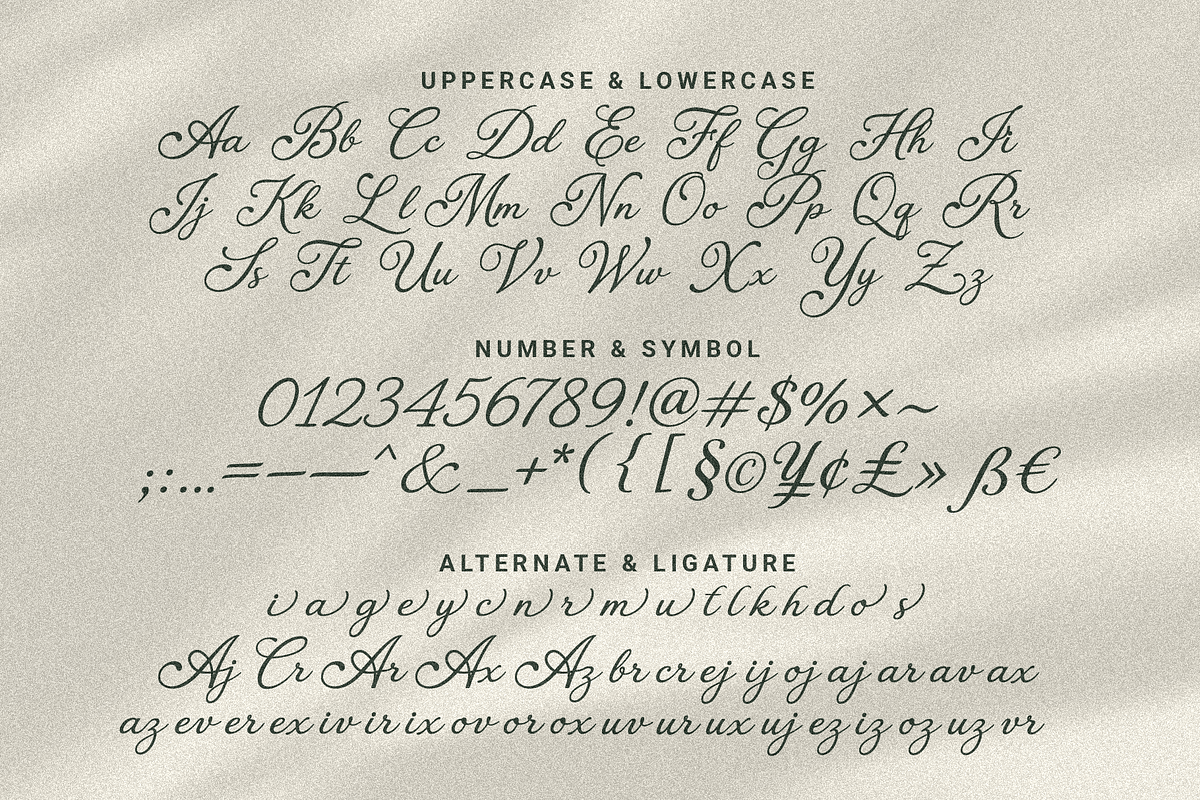 UPPERCASE & LOWERCASE
Aa Bb Cc Dd Ee Ff Gg Hh Ii
Jj Kk Ll Mm Nn Oo Pp Qq Rr
Ss Tt Uu Vv Ww Xx Yy Zz
NUMBER & SYMBOL
0123456789!@#$%×~
;:...=–—^&_+*({[§©¥¢£»ß€
ALTERNATE & LIGATURE
i a g e y c n r m u t l k h d o s
Aj Cr Ar Ax Az br cr ej ij oj aj ar av ax
az ev er ex iv ir ix ov or ox uv ur ux uj ez iz oz uz vr